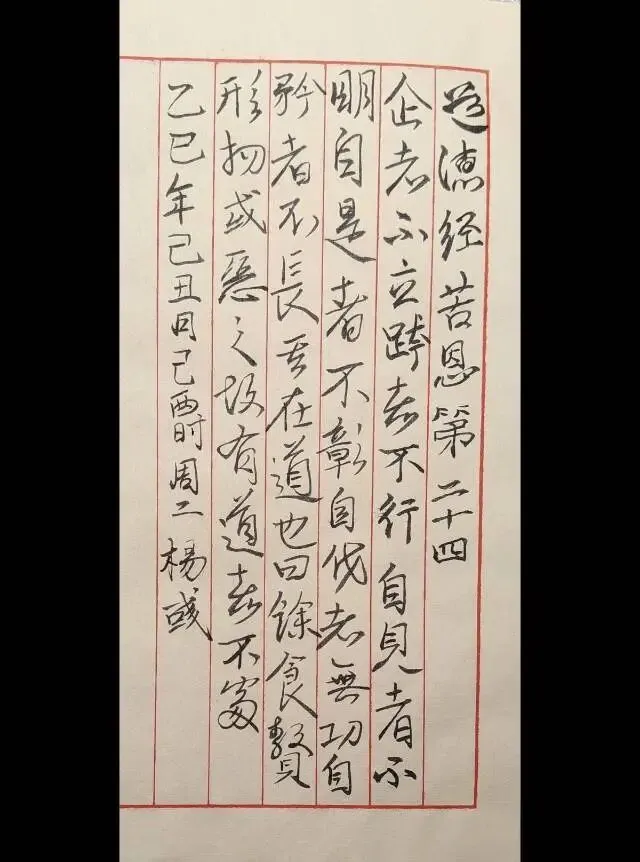 道德经苦恩第二十四
企者不立跨者不行自見者不
明自是者不彰自伐者無功自
矜者不長其在道也曰餘食贅
形物或惡之故有道者不處
乙巳年己丑月己酉时周二楊彧